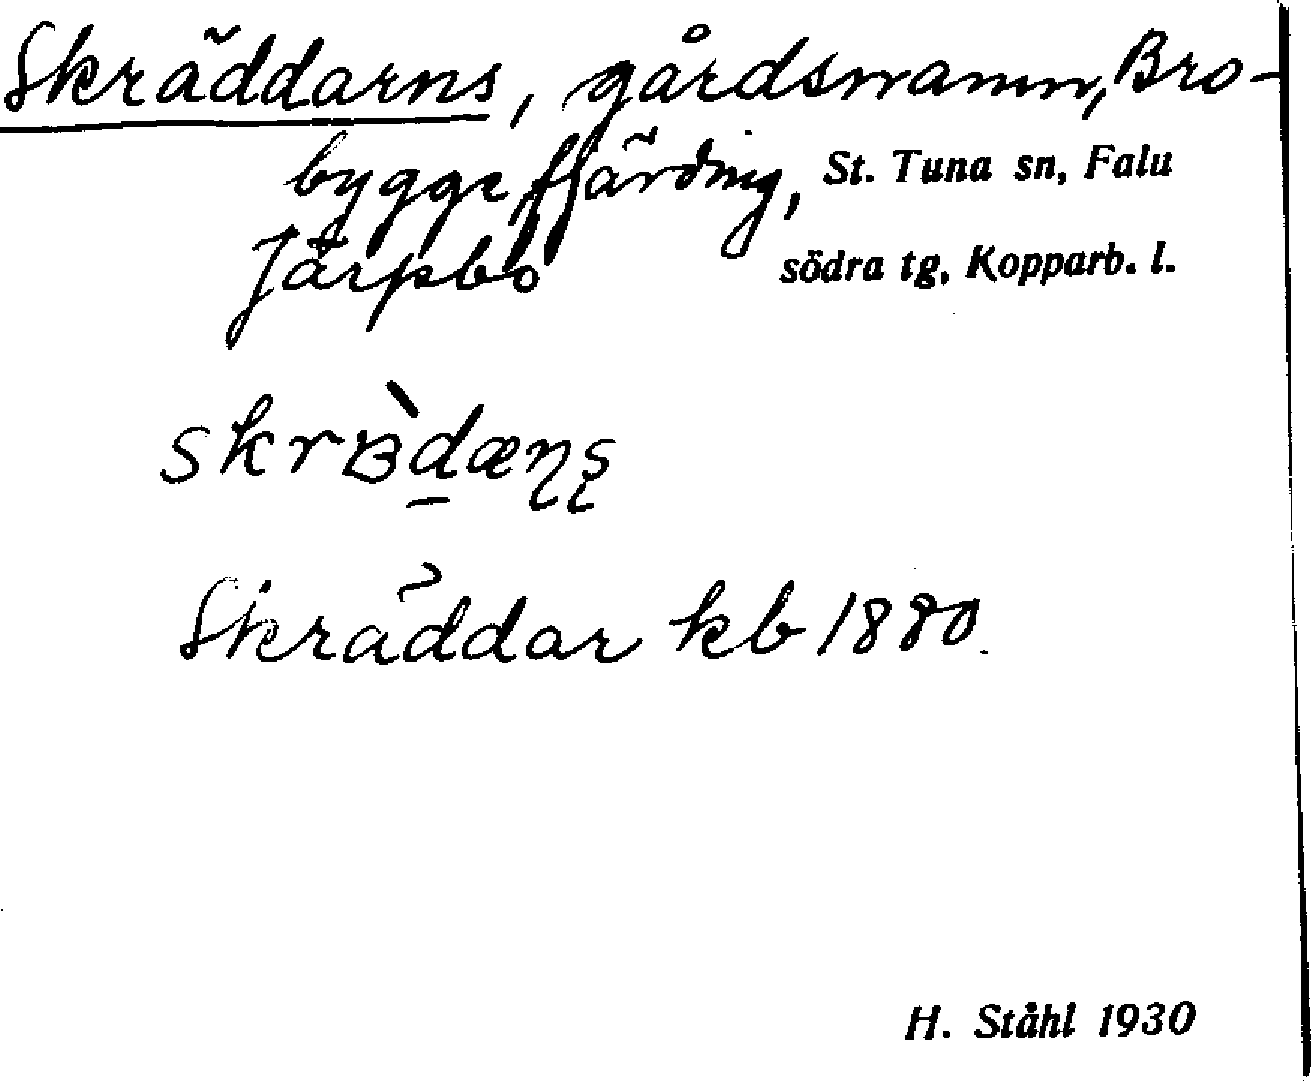 Skräddarns, gårdsnamn, Bro-
bygge fjärding, St. Tuna sn, Falu
Järpbo södra tg, Kopparb. l.
Skräddar kb 1880.
H. Ståhl 1930